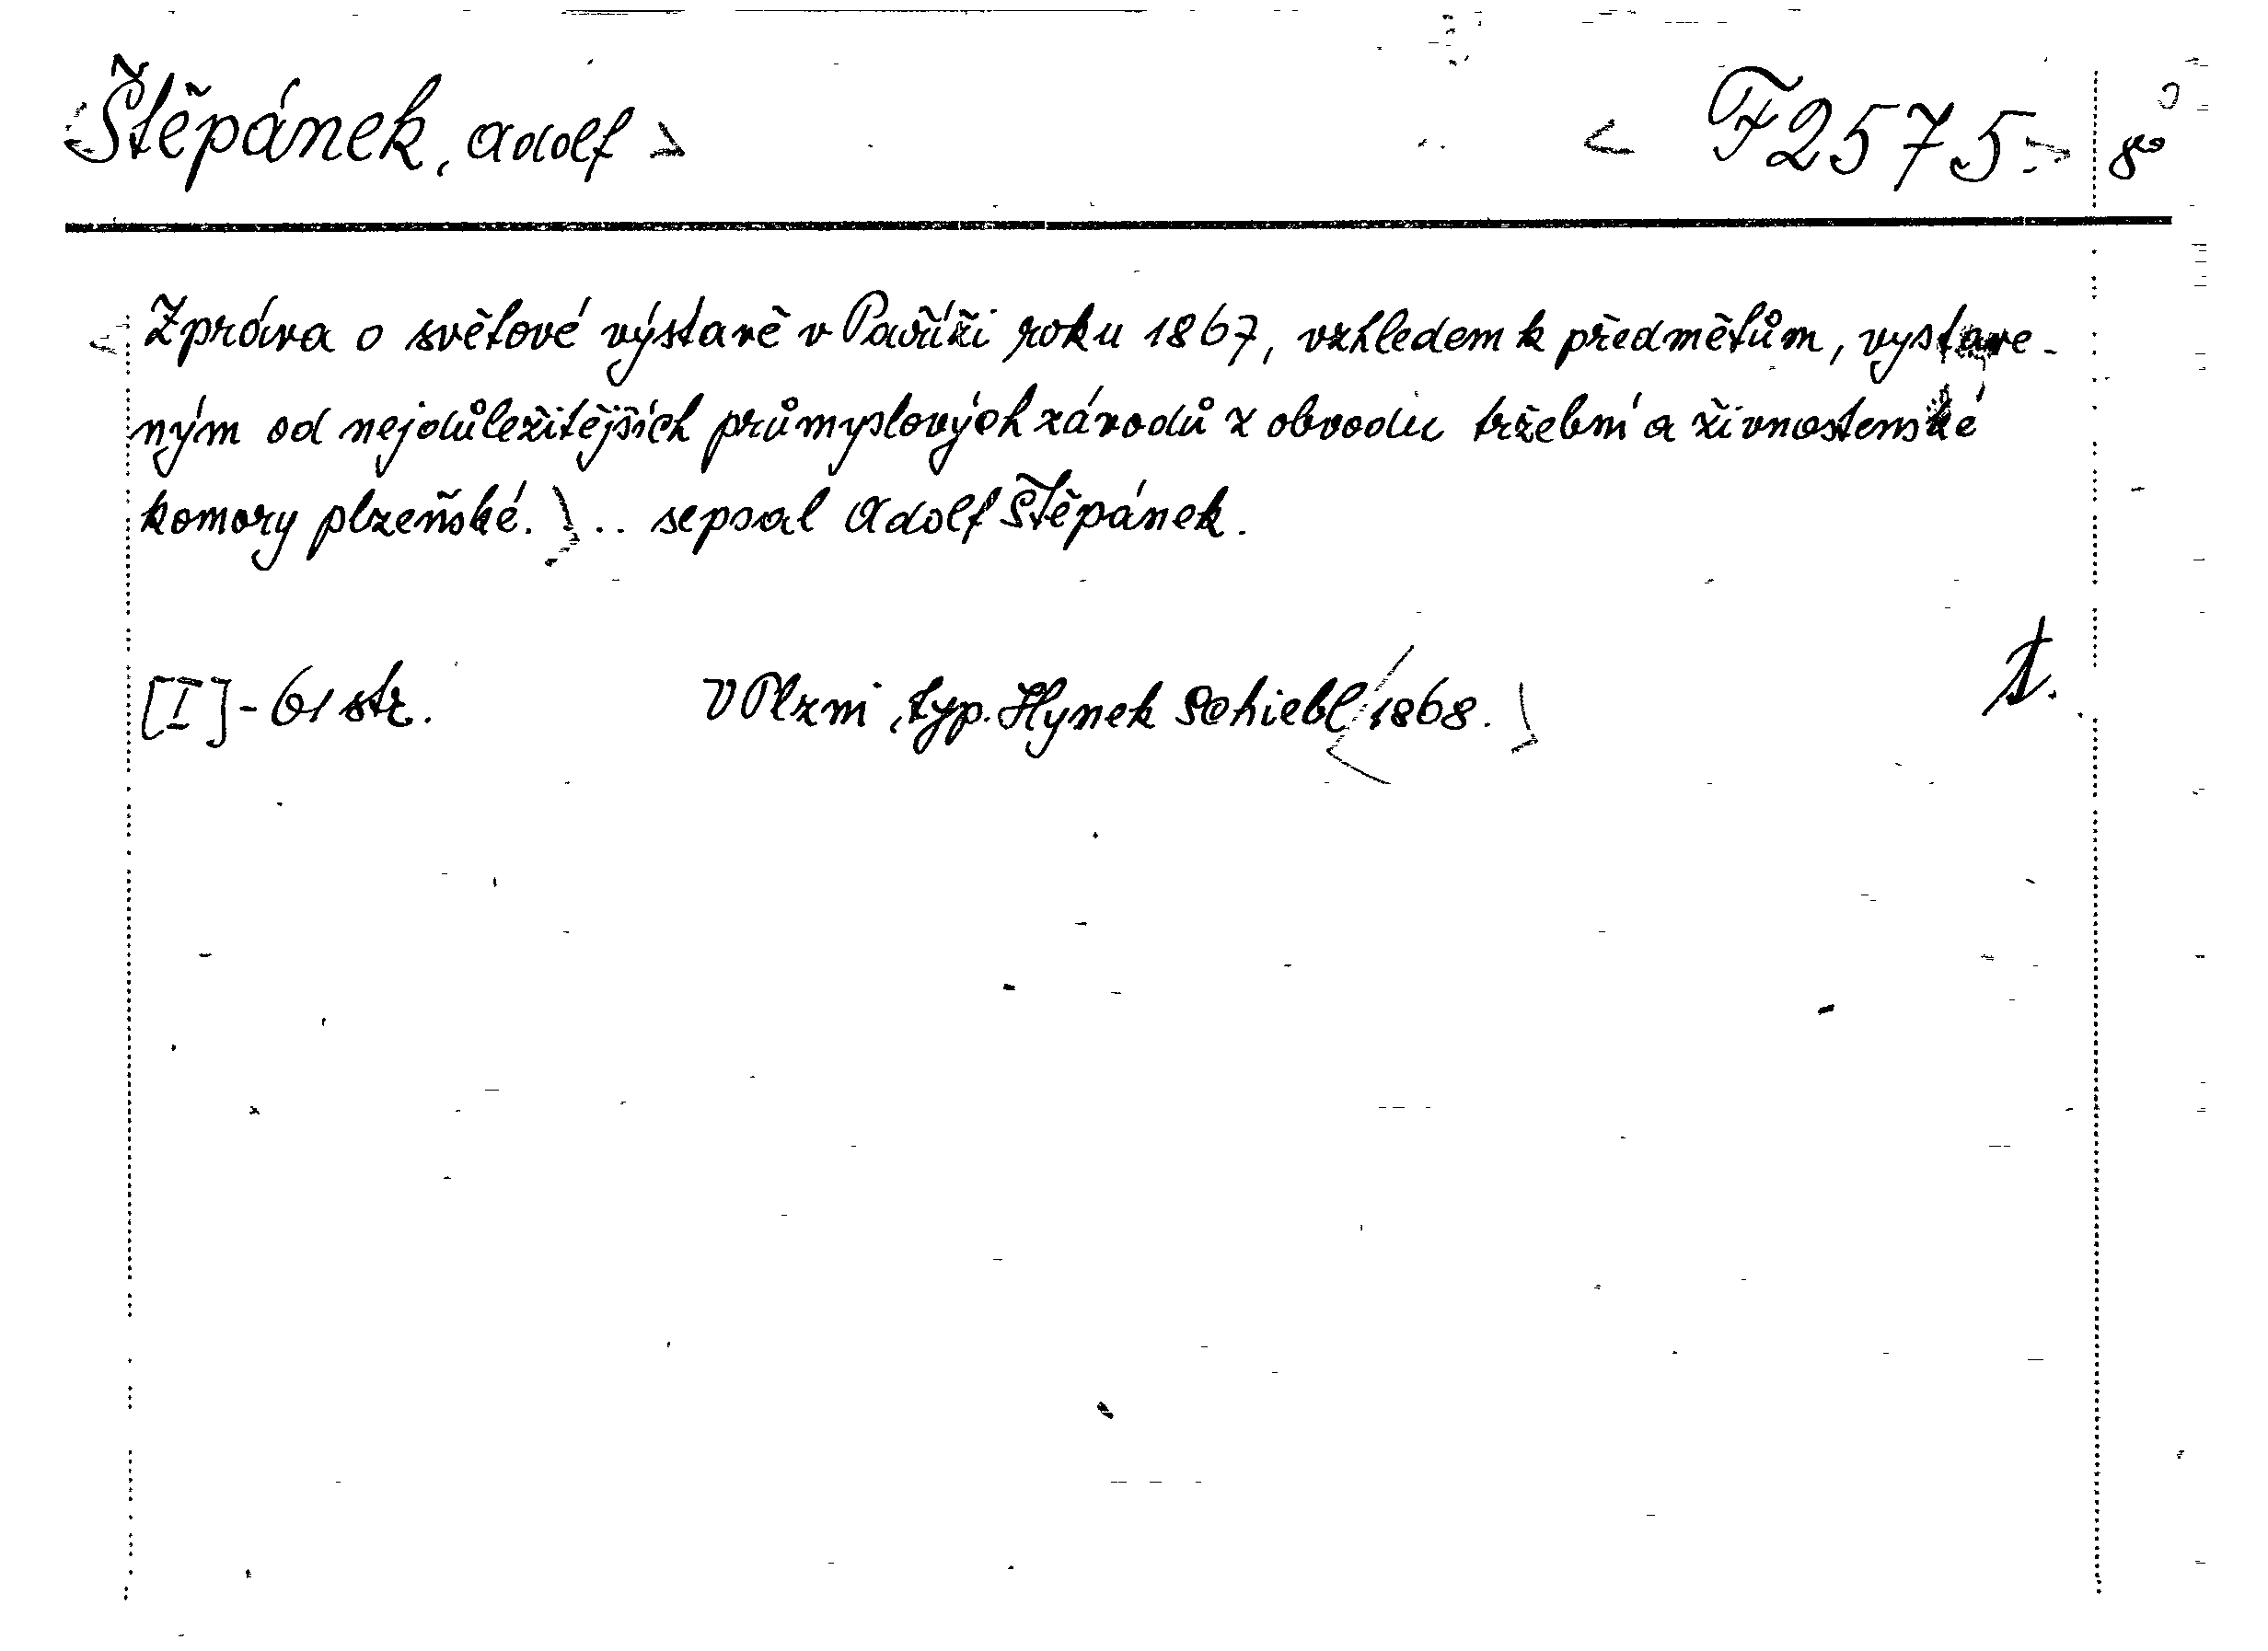 <Štěpánek, Adolf> <F 2575> 8°
<Zpráva o světové výstavě v Paříži roku 1867, vzhledem k předmětům, vystave-
ným od nejdůležitějších průmyslových závodů z obvodu tržební a živnostenské
komory plzeňské.> .. sepsal Adolf Štěpánek.
[I] - 61 str. V Plzni, typ. Hynek Schiebl <1868.>